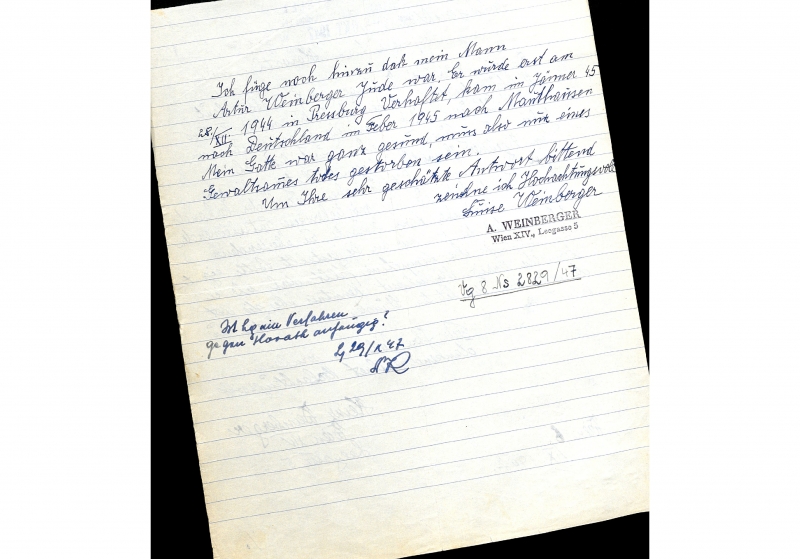 Ich füge noch hinzu daß mein Mann
Artur Weinberger Jude war. Er wurde erst am
28/XII 1944 in Pressburg Verhaftet, kam im Jänner 45
nach Deutschland im Feber 1945 nach Mauthausen
Mein Gatte war ganz gesund, muss also nur eines
Gewaltsames todes gestorben sein.
Um Ihre sehr geschätzte Antwort bittend
zeichne ich Hochachtungsvoll
Luise Weinberger
A. WEINBERGER
Wien XIV., Leegasse 5
Vg 8 Ns 2829/47
Ist hg ein Verfahren
gegen Horath anhängig?
29/X 47